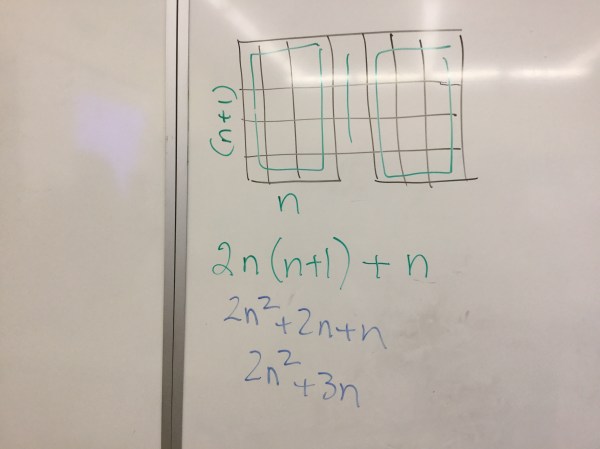 (n+1)
n
2n(n+1) + n
2n²+2n+n
2n²+3n